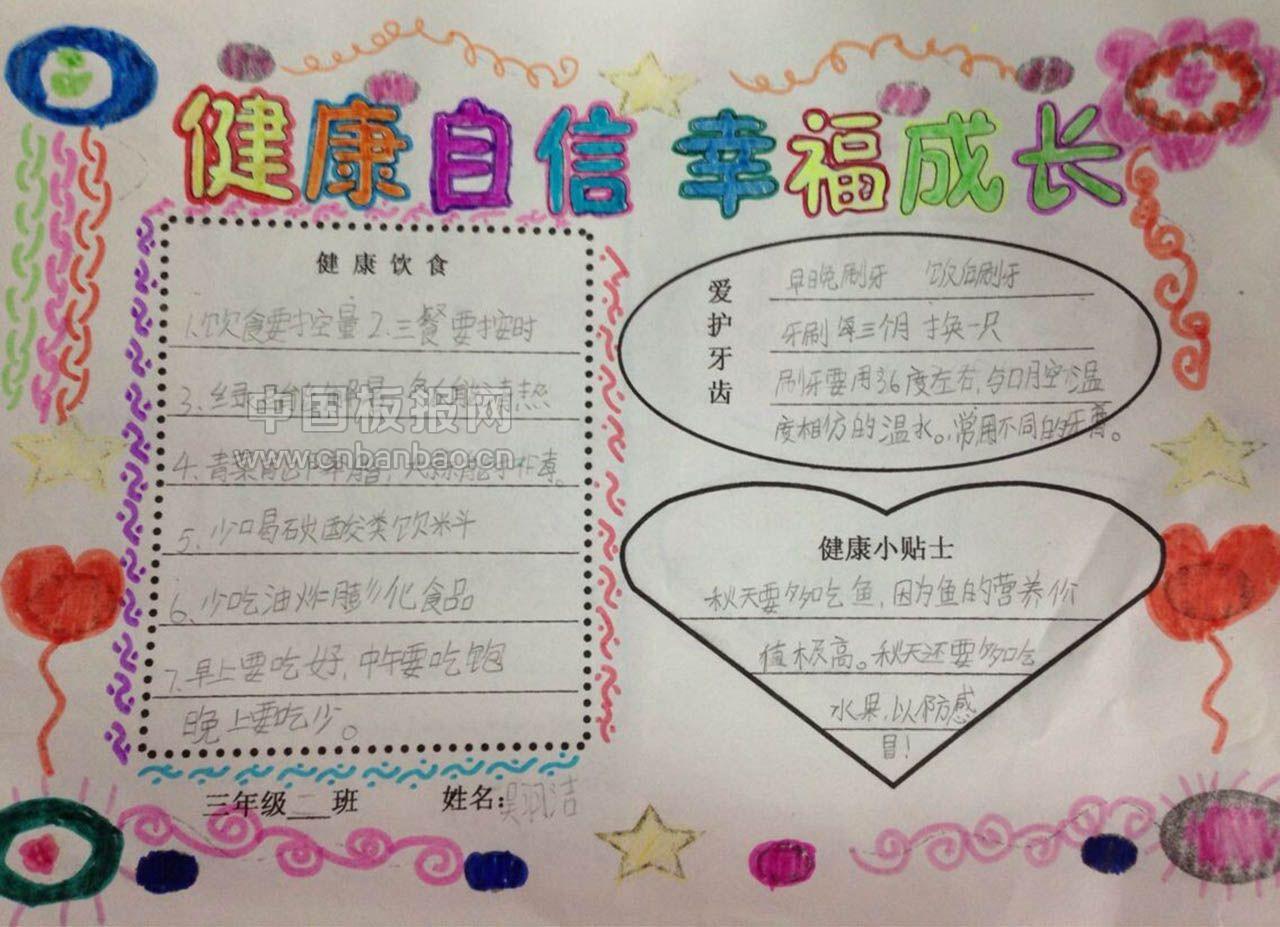 健康自信 幸福成长
健康饮食
1.饮食要控量 2.三餐要按时
3、绿
中国板报网
4、青菜
www.cnbanbao.cn
5、少喝碳酸类饮料
6、少吃油炸膨化食品
7、早上要吃好,中午要吃饱
晚上要吃少。
三年级二班 姓名:
爱护牙齿
早晚刷牙 饭后刷牙
牙刷每三个月换一只
刷牙要用36度左右,与口腔温
度相仿的温水。常用不同的牙膏。
健康小贴士
秋天要多吃鱼,因为鱼的营养价
值极高。秋天还要多吃
水果,以防感
冒!